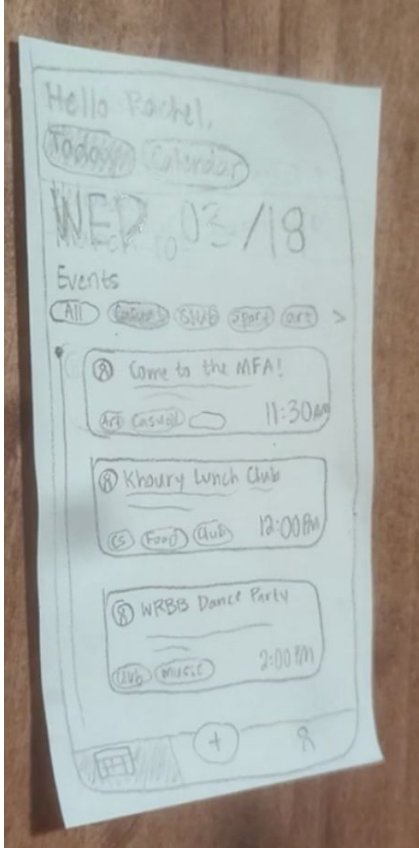 Hello Rachel,
Today Calendar
WED 03/18
Events
All Casual Club Sport art >
Come to the MFA!
Art Casual 11:30AM
Khoury Lunch Club
CS Food Club 12:00PM
WRBB Dance Party
Club music 2:00PM
+